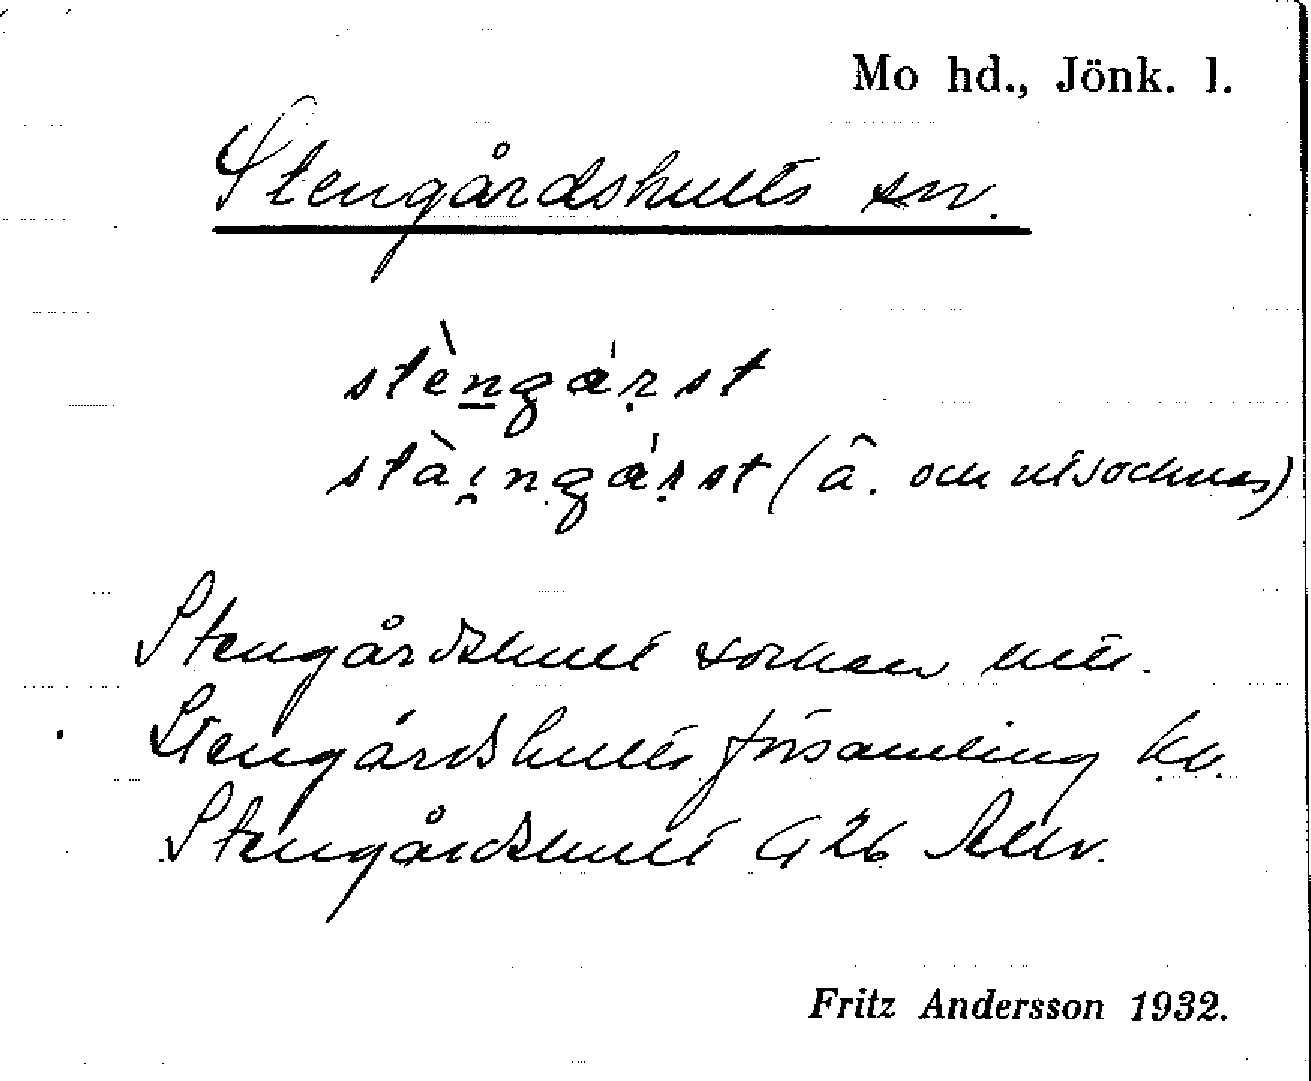 Mo hd., Jönk. l.
Stengårdshults sn.
stèngárst
stàingárst (ä. och utsocknes)
Stengårdshult socken
Stengårdshults församling
Stengårdshult G 26
Fritz Andersson 1932.